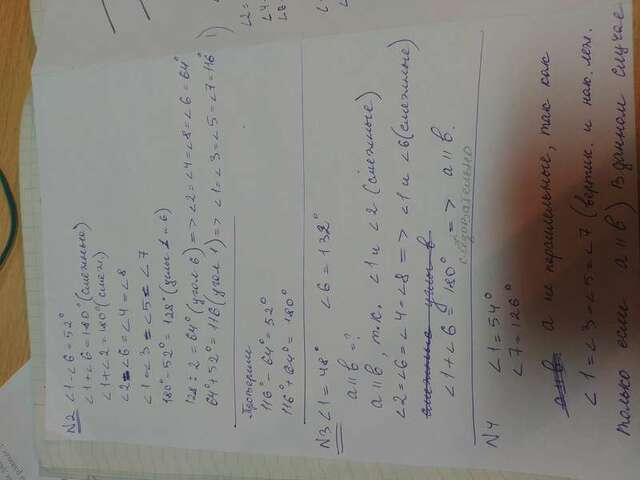 N2 ∠1-∠6=52°
∠1+∠6=180° (смежные)
∠1+∠2=180° (смеж.)
∠2=∠6=∠4=∠8
∠1=∠3=∠5=∠7
180°-52°=128° (углы 1 и 6)
128:2=64° (угол 6) => ∠2=∠4=∠8=∠6=64°
64°+52°=116 (угол 1) => ∠1=∠3=∠5=∠7=116°
Проверим
116°-64°=52°
116°+64°=180°
N3 ∠1=48° ∠6=132°
a||b=?
a||b, т.к. ∠1 и ∠2 (смежные)
∠2=∠6=∠4=∠8 => ∠1 и ∠6 (смежные)
смежные углы в
∠1+∠6=180° => a||b.
следовательно
N4 ∠1=54°
∠7=126°
a||b a не параллельные, так как
∠1=∠3=∠5=∠7 (вертик. и нак. леж.
только если a||b) В данном случае
∠2=
∠4
∠8